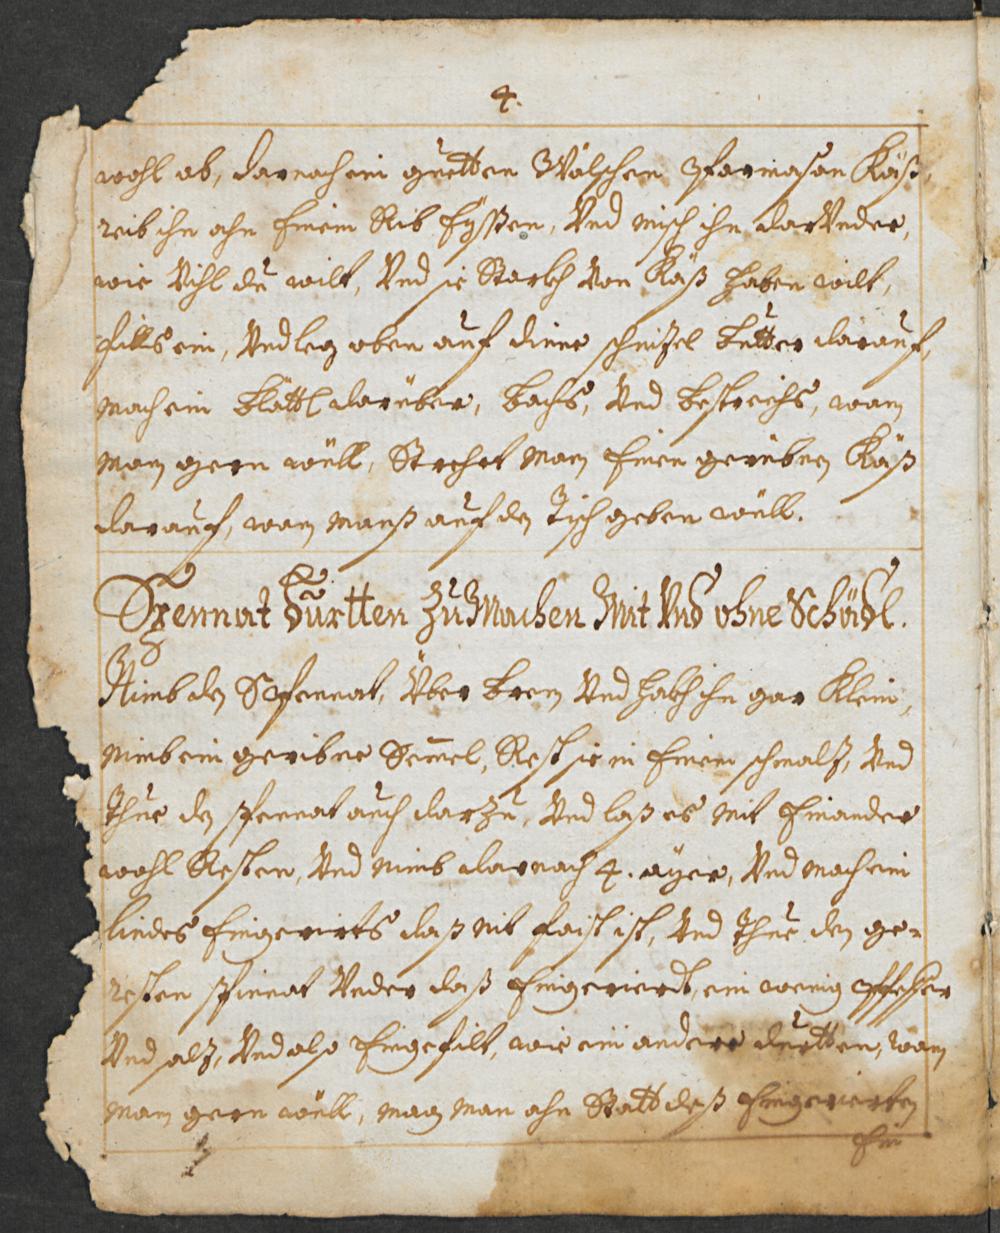 4.
wohl ab, darnach ein guetten Wälschen Parmasan Käß,
reib ihn ahn Einem Rib Eyßen, Vnd misch ihn darVnder,
wie Vihl du wilt, Vnd sie Starkh Von Käß haben wilt,
fills ein, Vnd leg oben auf dinne schnizel Butter darauf,
mach ein Blättl darüber, Bachs, Vnd Bestreichs, wan
man gern wüll, Strehet man Einen geribnen Käß
darauf, wan manß auf den Tisch geben wüll.
Spennat Turtten Zu Machen Mit Vnd ohne Schödl.
Nimb den Spennat, Vber Bren Vnd hakh ihn gar Klein,
nimb ein geribne Semel, Rest sie in Einem schmalz, Vnd
Thue den spennat auch darzu, Vnd laß es mit Einander
wohl Resten, Vnd nimb darnach 4. ayer, Vnd mach ein
lindes Eingerirts daß nit faist ist, Vnd Thue den ge-
resten spinnat Vnder daß Eingeriert, ein wenig Pfeffer
Vnd salz, Vnd also Eingefilt, wie ein andere durtten, wan
man gern wüll, mag man ahn Statt deß Eingerierten
Ein